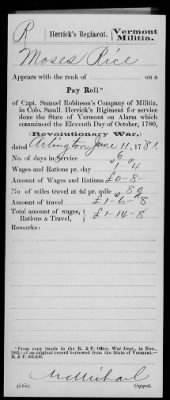 R Herrick's Regiment. Vermont Militia.
Moses Rice
Appears with the rank of on a
Pay Roll*
of Capt. Samuel Robinson's Company of Militia,
in Colo. Samll. Herrick's Regiment for service
done the State of Vermont on Alarm which
commenced the Eleventh Day of October, 1780,
Revolutionary War,
dated Arlington June 11, 1781.
No. of days in Service 6
Wages and Rations pr. day 1" 4
Amount of Wages and Rations £0-8-
No. of miles travel at 4d. pr. mile 80
Amount of travel £1-6-8
Total amount of wages, Rations & Travel, £1-14-8
Remarks:
*From copy made in the R. & P. Office, War Dept., in Nov.,
of an original record borrowed from the State of Vermont.—
R. & P.
Copyist.